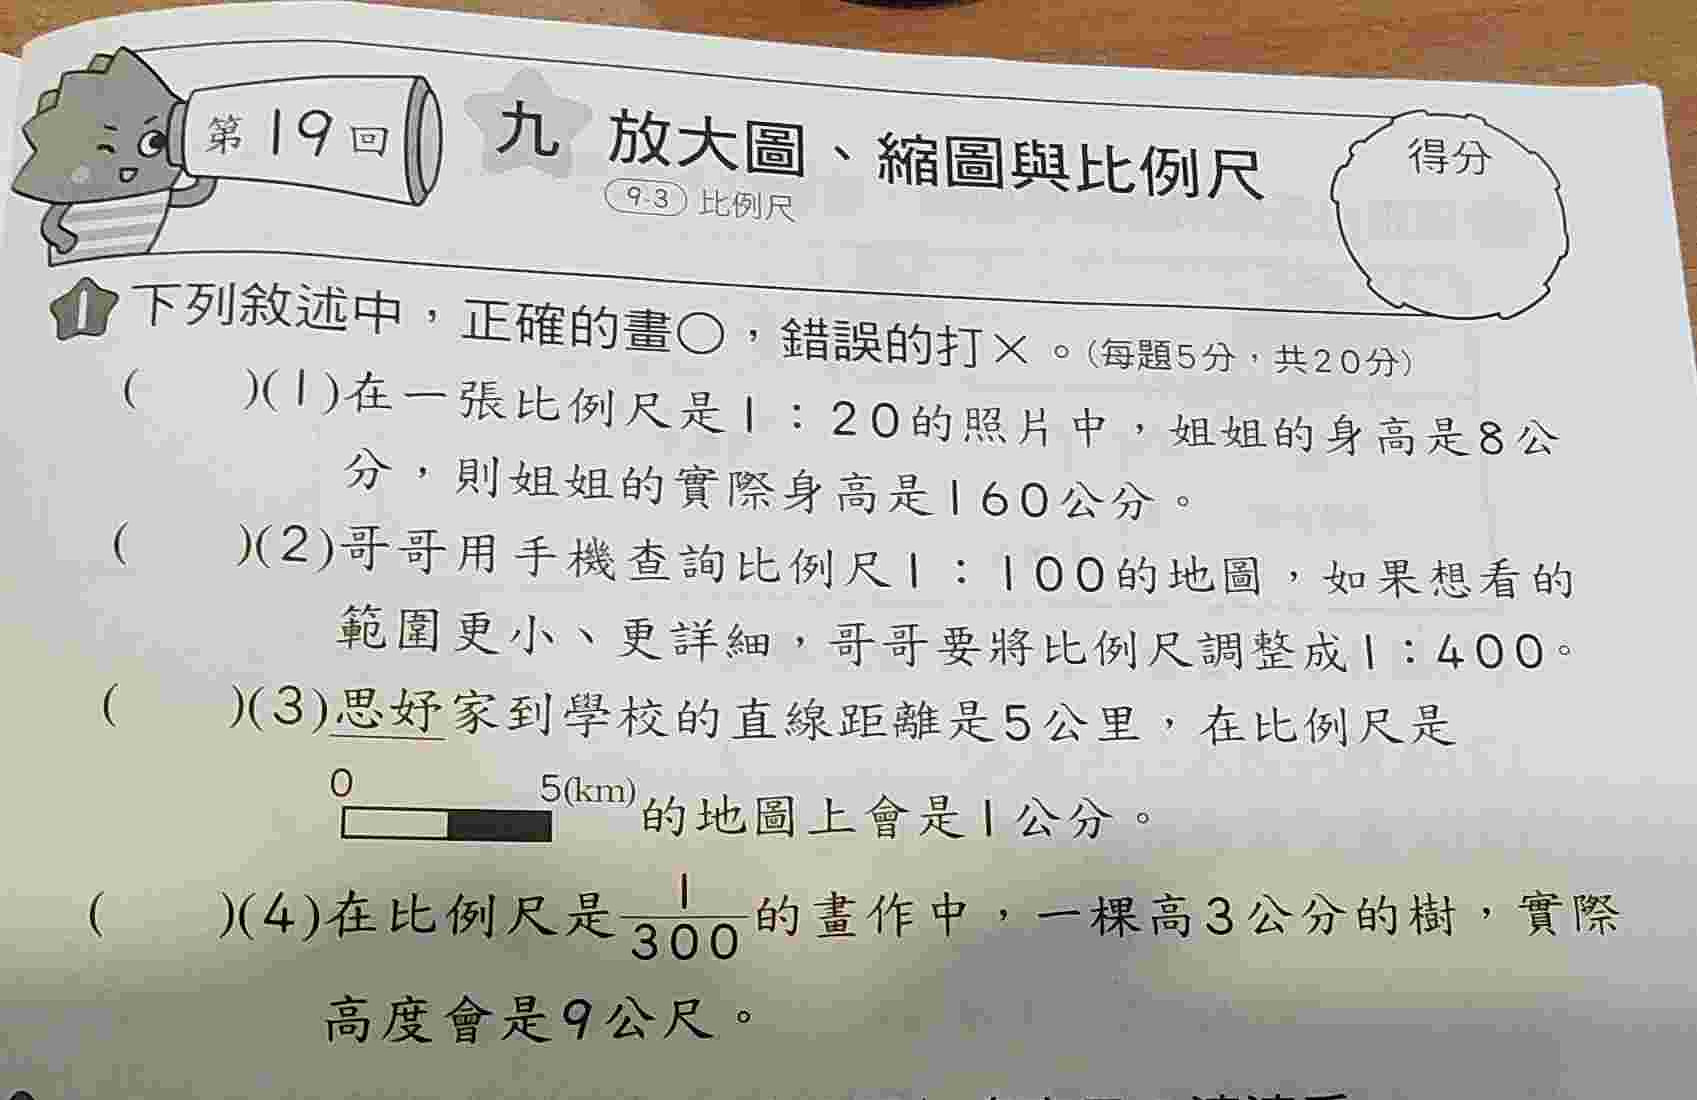 第19回
九 放大圖、縮圖與比例尺
9-3 比例尺
得分
1 下列敘述中，正確的畫○，錯誤的打×。(每題5分，共20分)
(　　)(1)在一張比例尺是1：20的照片中，姐姐的身高是8公
分，則姐姐的實際身高是160公分。
(　　)(2)哥哥用手機查詢比例尺1：100的地圖，如果想看的
範圍更小、更詳細，哥哥要將比例尺調整成1：400。
(　　)(3)思妤家到學校的直線距離是5公里，在比例尺是
0 5(km) 的地圖上會是1公分。
(　　)(4)在比例尺是1/300的畫作中，一棵高3公分的樹，實際
高度會是9公尺。